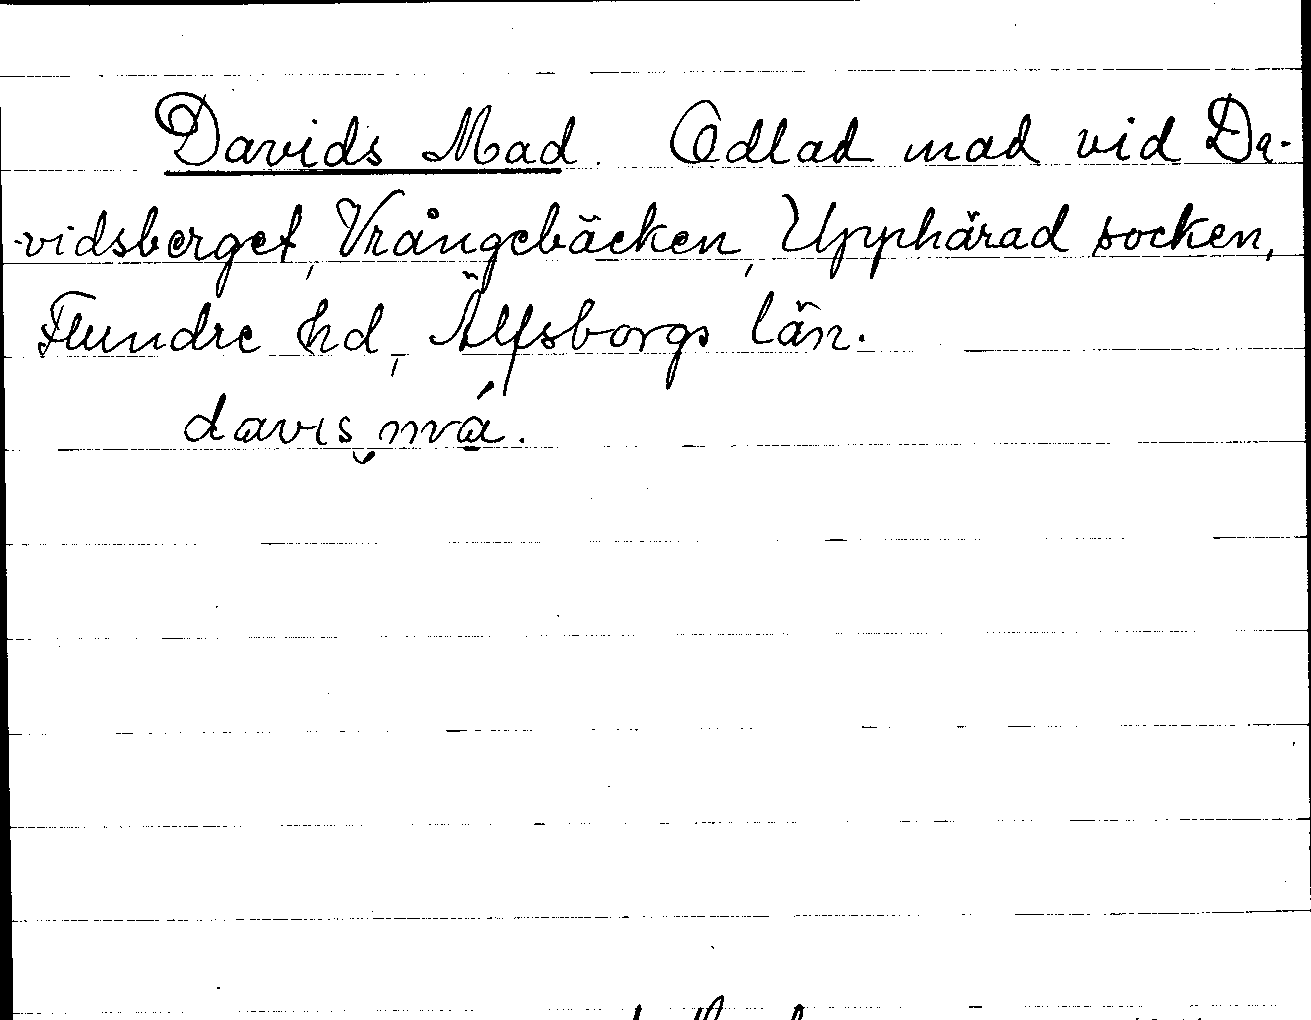 Davids Mad. Odlad mad vid Da-
-vidsberget, Vrångebäcken, Upphärad socken,
Flundre hd, Älfsborgs län.
davis‿má.